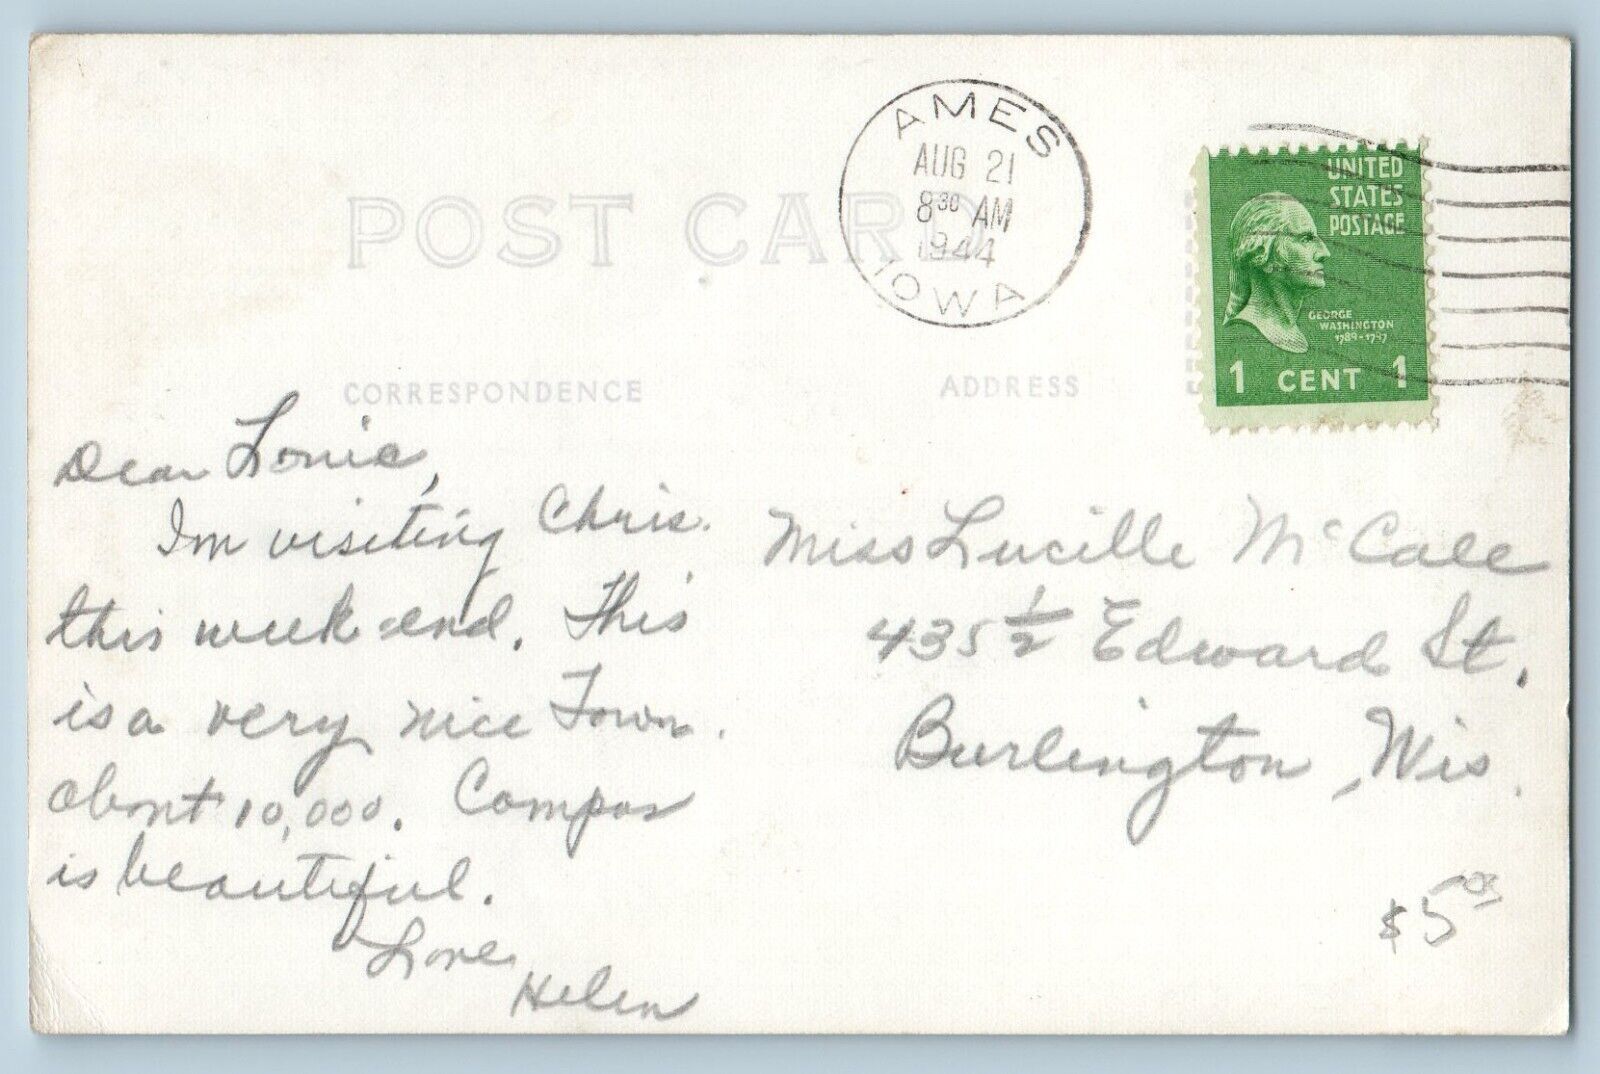 POST CARD
AMES
AUG 21
8 30 AM
1944
IOWA
UNITED
STATES
POSTAGE
GEORGE
WASHINGTON
1789-1797
1 CENT 1
CORRESPONDENCE
ADDRESS
Dear
Im visiting Chris.
this week-end. This
is a very nice Town.
about 10,000. Campus
is beautiful.
Love
Helen
Miss Lucille McCale
435 1/2 Edward St.
Burlington, Wis.
$5 00